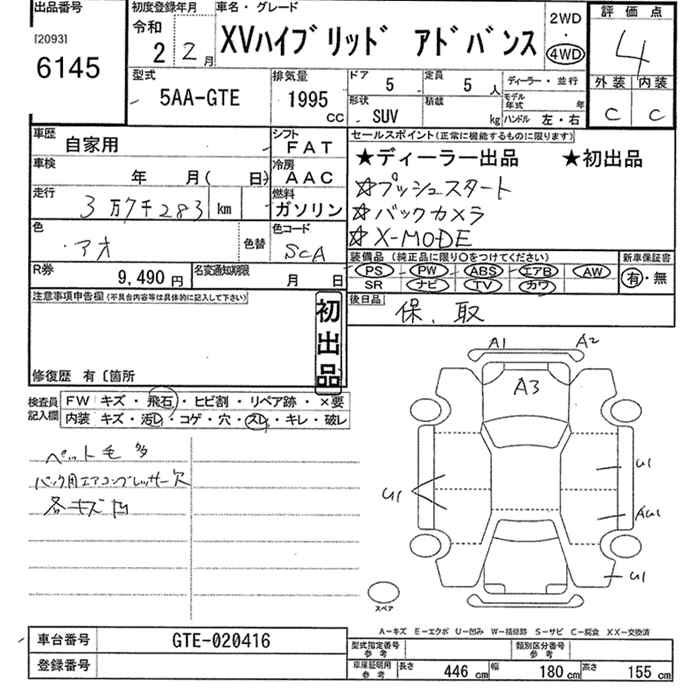 出品番号
[2093]
6145
初度登録年月
令和
2 2月
車名・グレード
XVハイブリッド アドバンス
2WD
・
4WD
評価点
4
外装 内装
C C
型式
5AA-GTE
排気量
1995
CC
ドア
5
定員
5 人
形状
SUV
積載
kg
ディーラー・並行
モデル年式 年
ハンドル 左・右
車歴
自家用
シフト
FAT
車検
年 月( 日)
冷房
AAC
走行
3万7千283 km
燃料
ガソリン
色
アオ
色替
色コード
SCA
R券
9,490 円
名変通知期限
月 日
セールスポイント(正常に機能するものに限ります)
★ディーラー出品 ★初出品
☆プッシュスタート
☆バックカメラ
☆X-MODE
装備品(純正品に限り○をつけてください)
PS PW ABS エアB AW
SR ナビ TV カワ
新車保証書
有・無
後日品
保、取
注意事項申告欄(不具合内容等は具体的に記入して下さい)
初出品
修復歴 有〔箇所
検査員記入欄
FW キズ・飛石・ヒビ割・リペア跡・×要
内装 キズ・汚レ・コゲ・穴・スレ・キレ・破レ
ペット毛多
パンク用エアコンプレッサー欠
各キズ凹
A1 A2
A3
U1
U1
AU1
U1
スペア
A-キズ E-エクボ U-凹み W-補修跡 S-サビ C-腐食 XX-交換済
車台番号
GTE-020416
登録番号
型式指定番号
参考
類別区分番号
参考
車庫証明用
参考
長さ 446 cm 幅 180 cm 高さ 155 cm